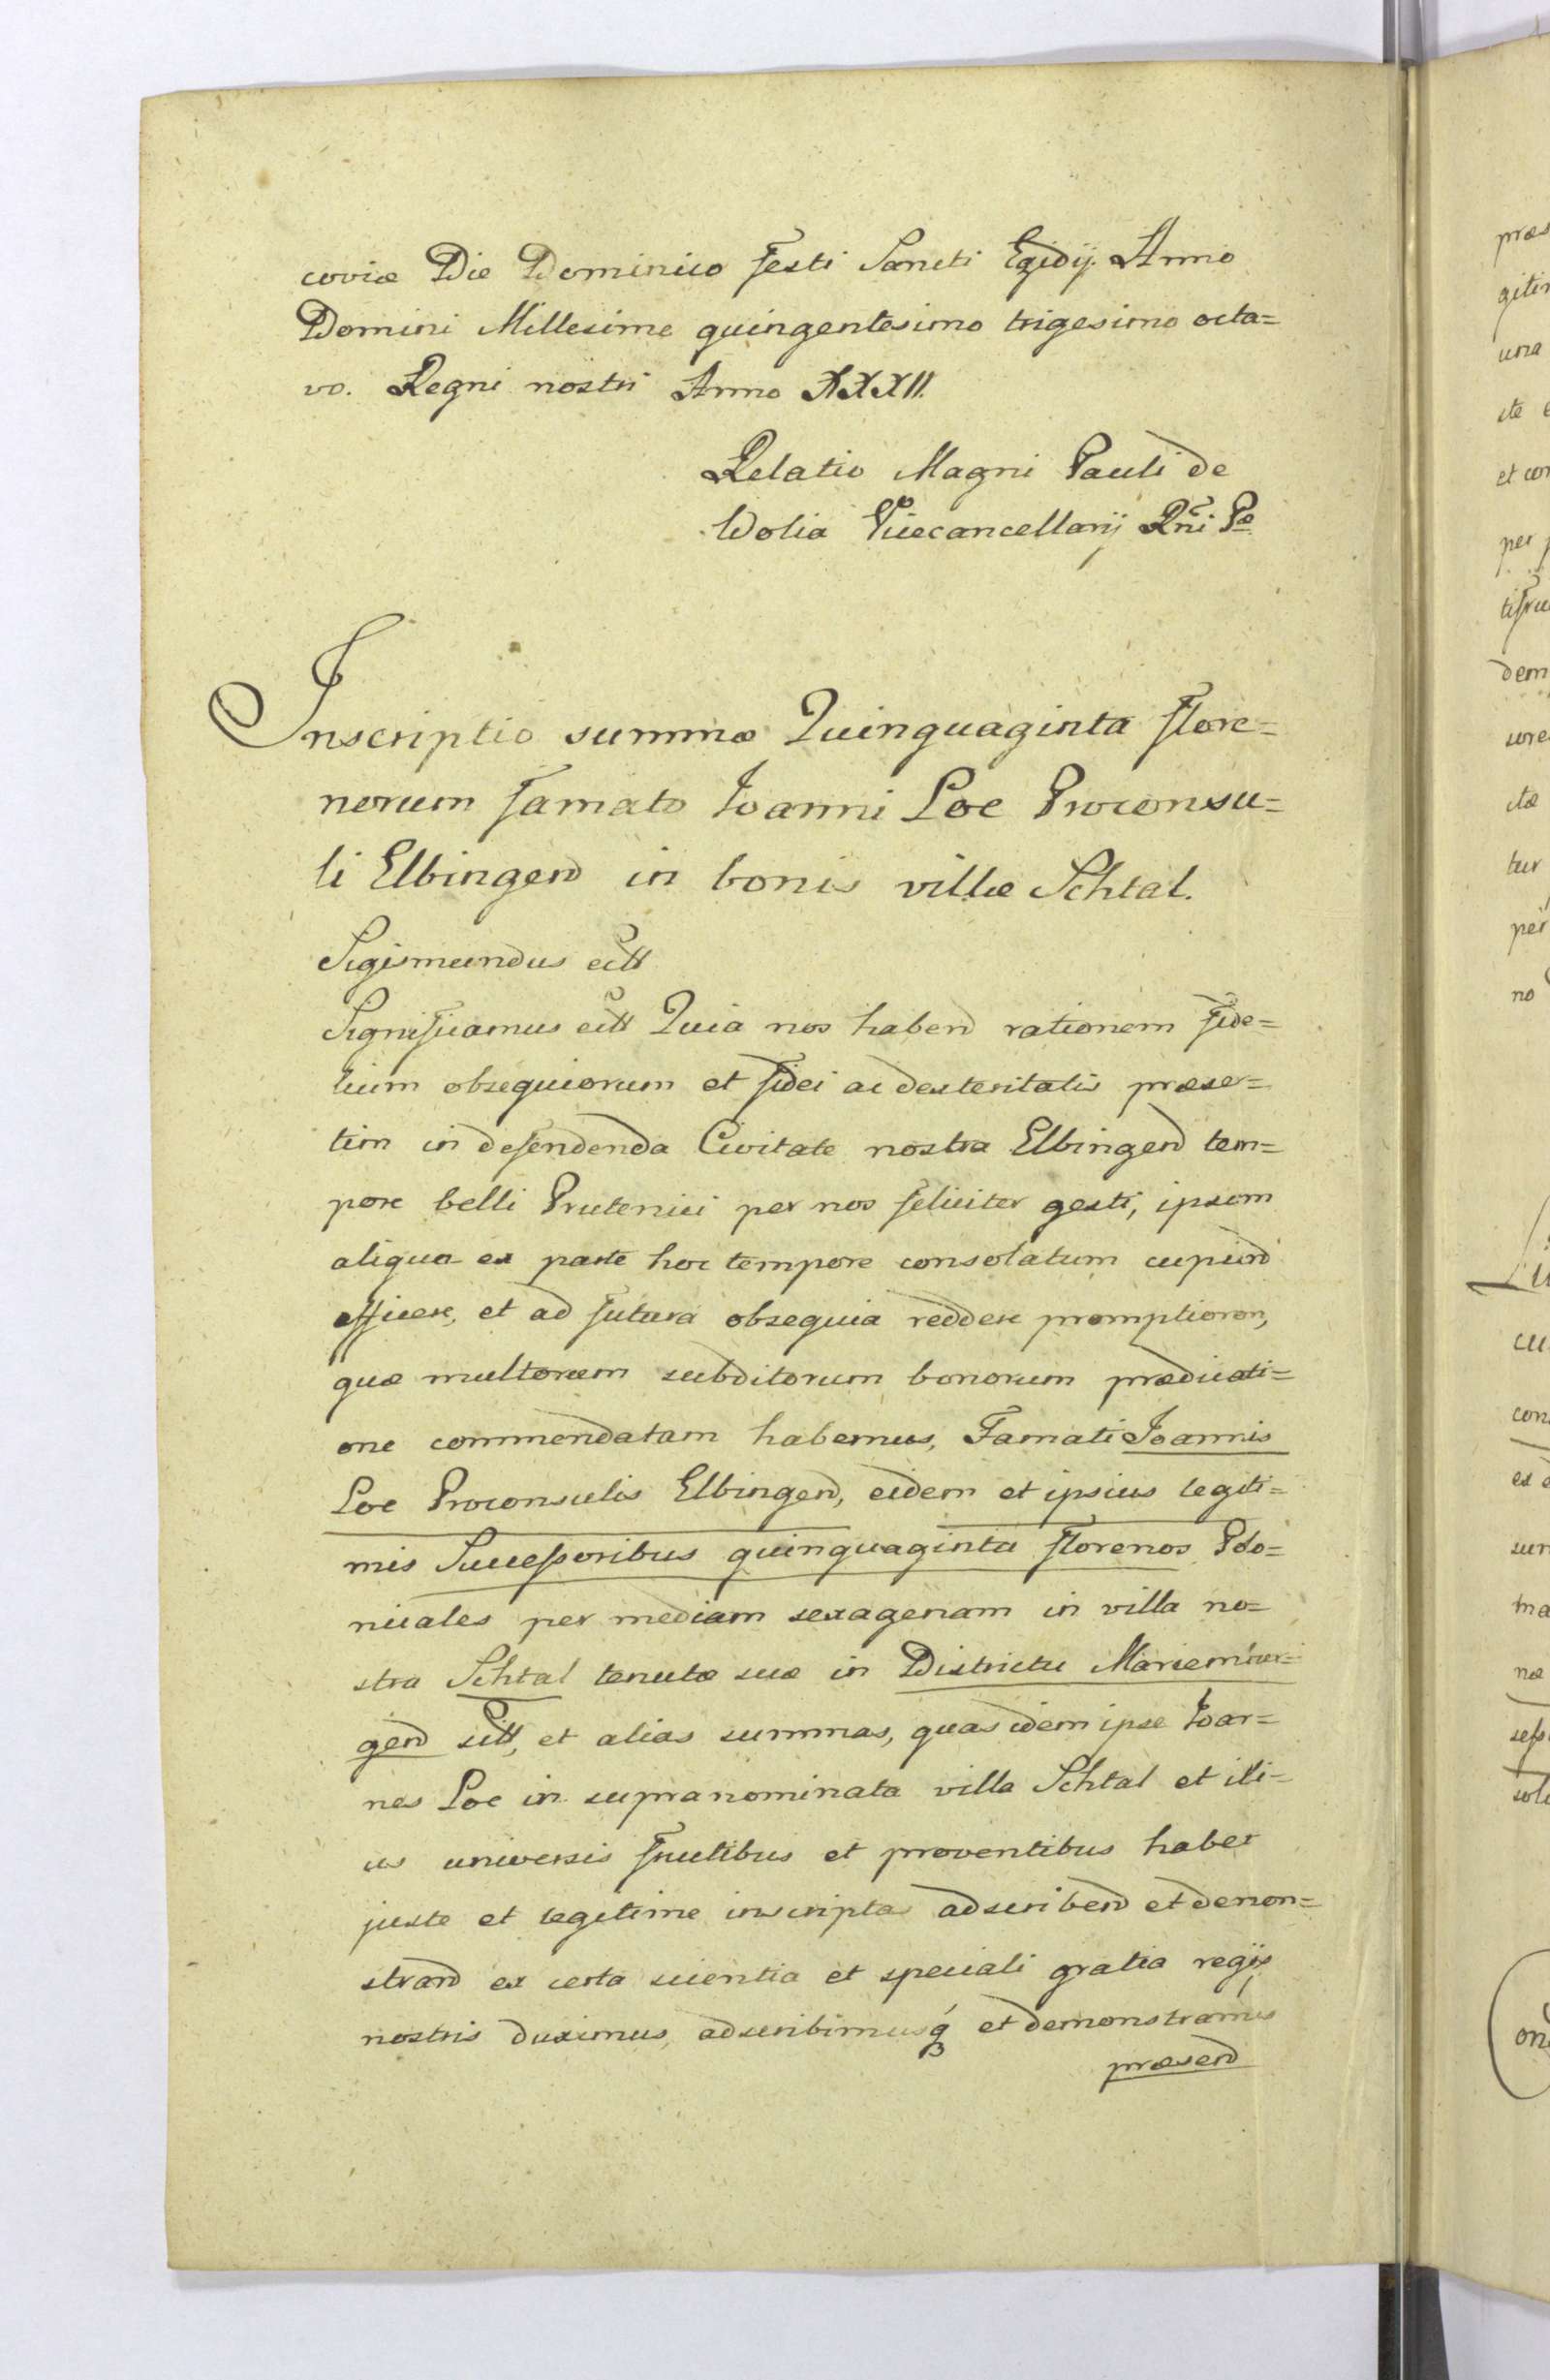 coviæ Die Dominico festi Sancti Egidij. Anno
Domini Millesimo quingentesimo trigesimo octa=
vo. Regni nostri Anno XXXII.
Relatio Magni Pauli de
Wolia Vicecancellarij Rni Pæ
Inscriptio summæ Quinquaginta flore=
norum famato Joanni Loe Proconsu=
li Elbingen in bonis villæ Schtal.
Sigismundus ett
Significamus ett Quia nos haben rationem fide=
lium obsequiorum et fidei ac dexteritatis præser=
tim in defendenda Civitate nostra Elbingen tem=
pore belli Prutenici per nos feliciter gesti, ipsum
aliqua ex parte hoc tempore consolatum cupien
efficere, et ad futura obsequia reddere promptiorem,
quæ multorum subditorum bonorum prædicati=
one commendatam habemus, Famati Joannis
Loe Proconsulis Elbingen, eidem et ipsius legiti=
mis Successoribus quinquaginta florenos Polo=
nicales per mediam sexagenam in villa no=
stra Schtal tenutæ suæ in Districtu Mariembur=
gen sitt, et alias summas, quas idem ipse Joan=
nes Loe in supranominata villa Schtal et illi=
us universis fructibus et proventibus habet
juste et legitime inscriptas adscriben et demon=
stran ex certa scientia et speciali gratia regijs
nostris duximus, adscribimusq et demonstramus
præsen
præs
gitim
una
ite
et con
per
dem
cu
con
tur
per
no